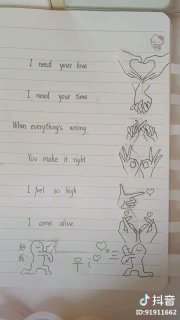 I need your love
I need your time
When everything's wrong
You make it right
I feel so high
I come alive
抖音
ID:91911662